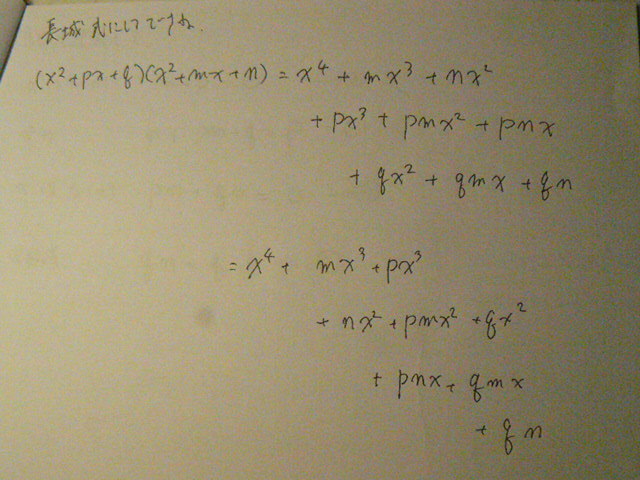 長城式にしてですね.
(x²+px+q)(x²+mx+n) = x⁴ + mx³ + nx²
+ px³ + pmx² + pnx
+ qx² + qmx + qn
= x⁴ + mx³ + px³
+ nx² + pmx² + qx²
+ pnx + qmx
+ qn